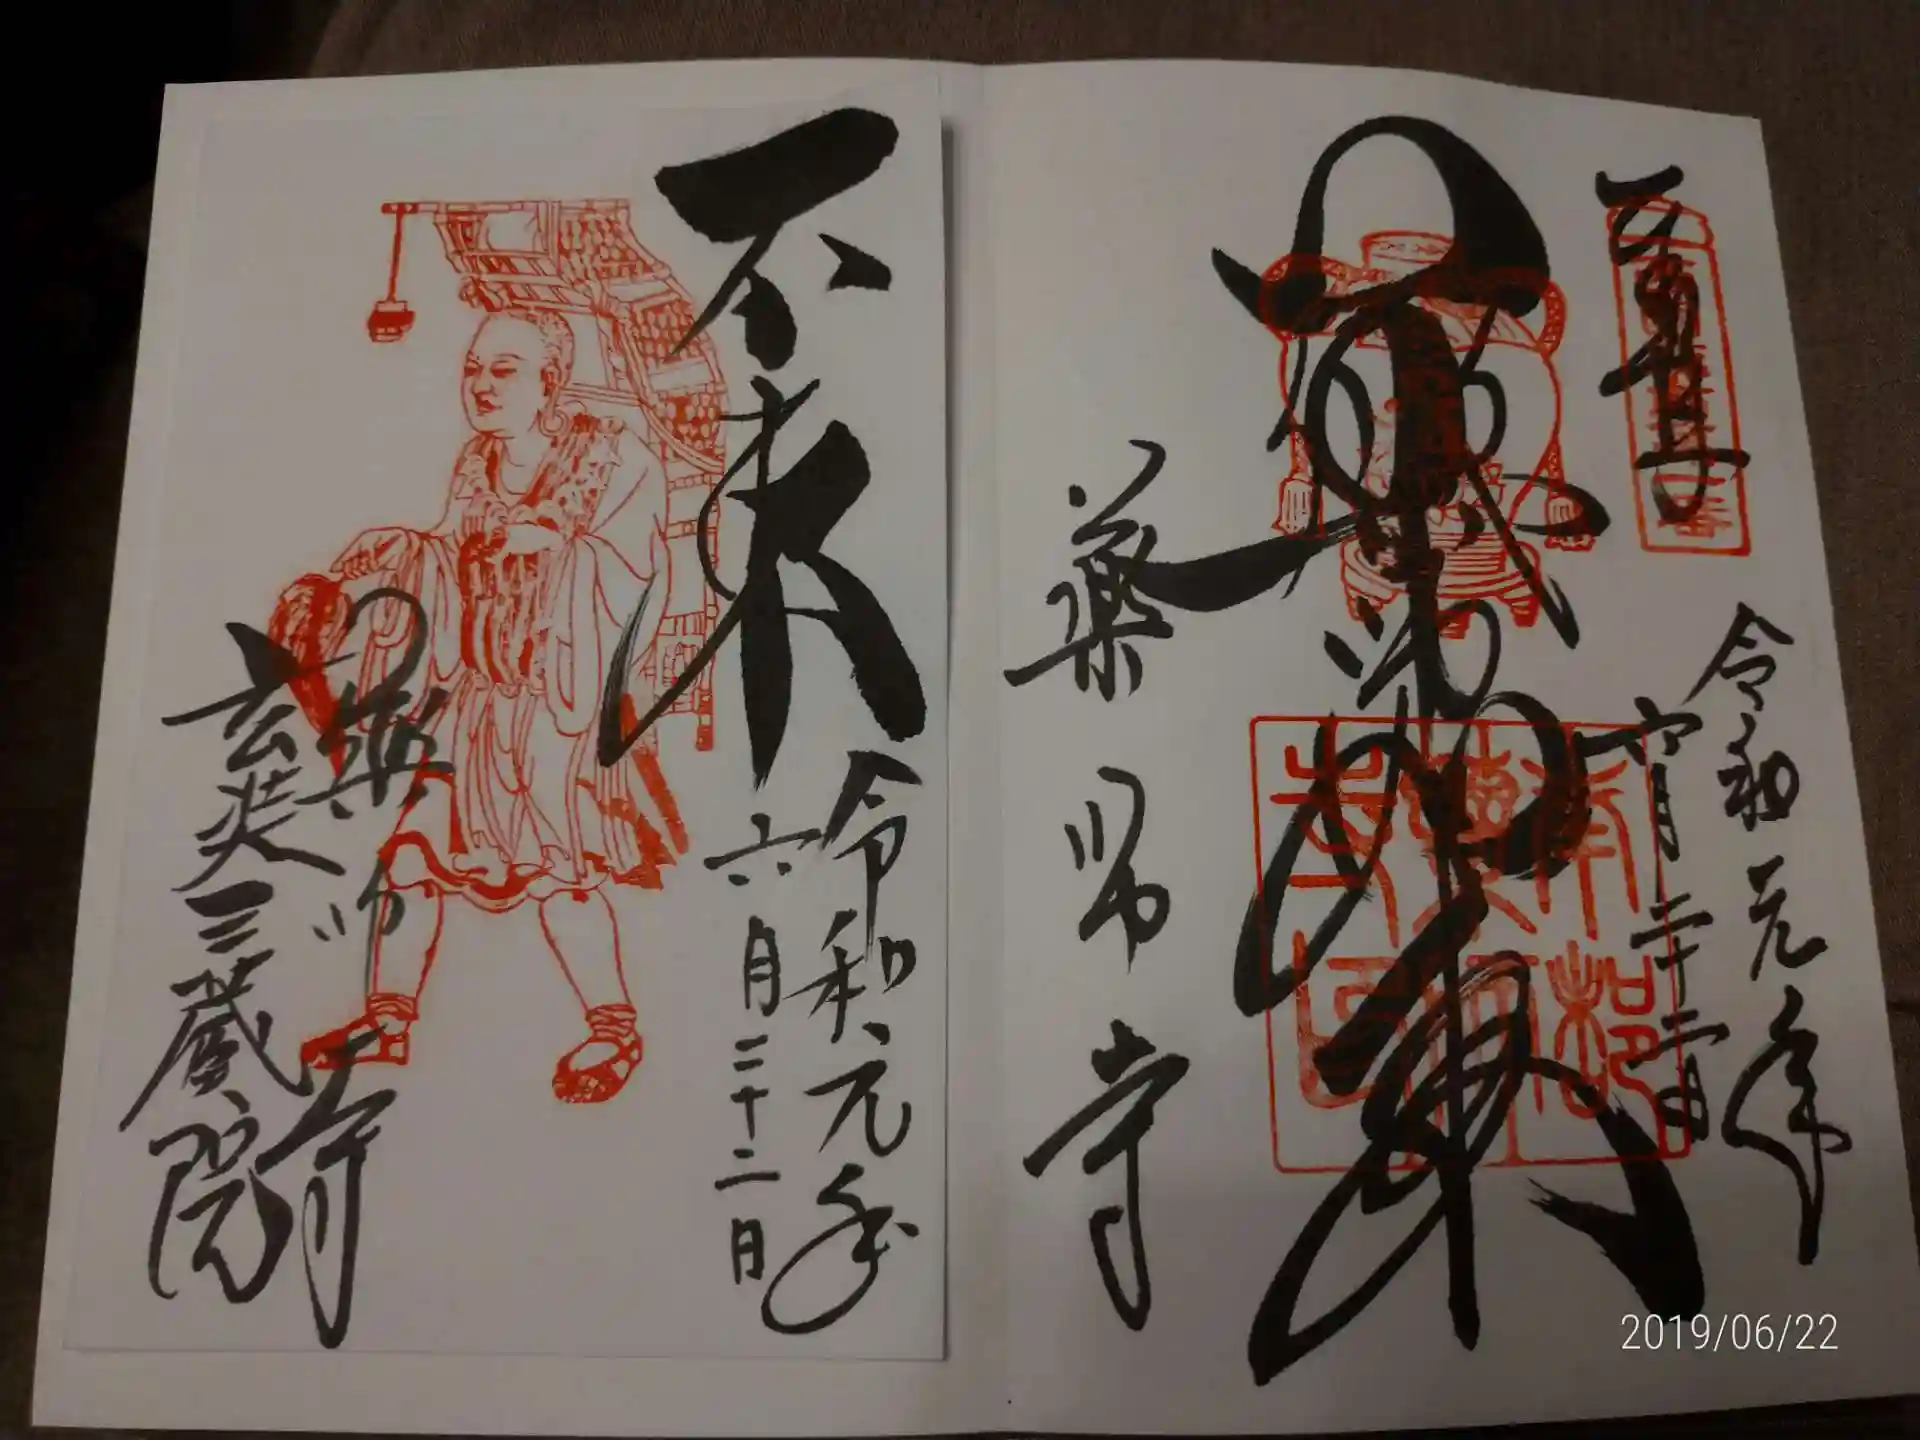 奉拝
令和元年
六月二十二日
薬師如来
薬師寺
不東
令和元年
六月二十二日
薬師寺
玄奘三蔵院
2019/06/22